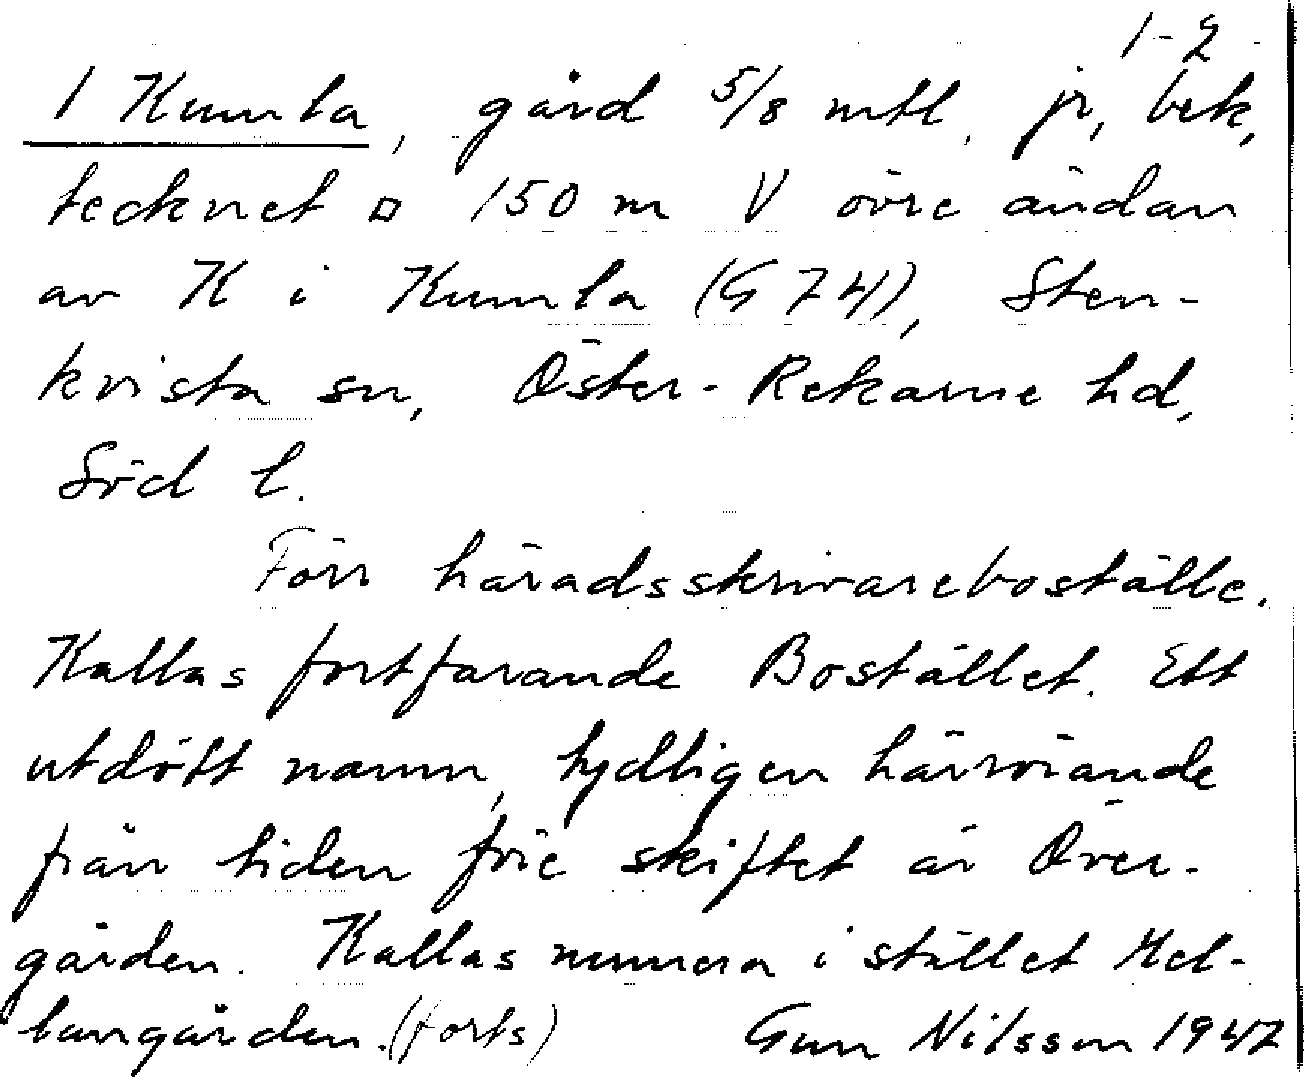 1-2
1 Kumla, gård 5/8 mtl, jr, bek,
tecknet ¤ 150 m V övre ändan
av K i Kumla (G 74), Sten-
kvista sn, Öster-Rekarne hd,
Söd l.
Förr häradsskrivareboställe.
Kallas fortfarande Bostället. Ett
utdött namn, tydligen härrörande
från tiden före skiftet är Över-
gården. Kallas numera i stället Mel-
langården. (forts) Gun Nilsson 1947